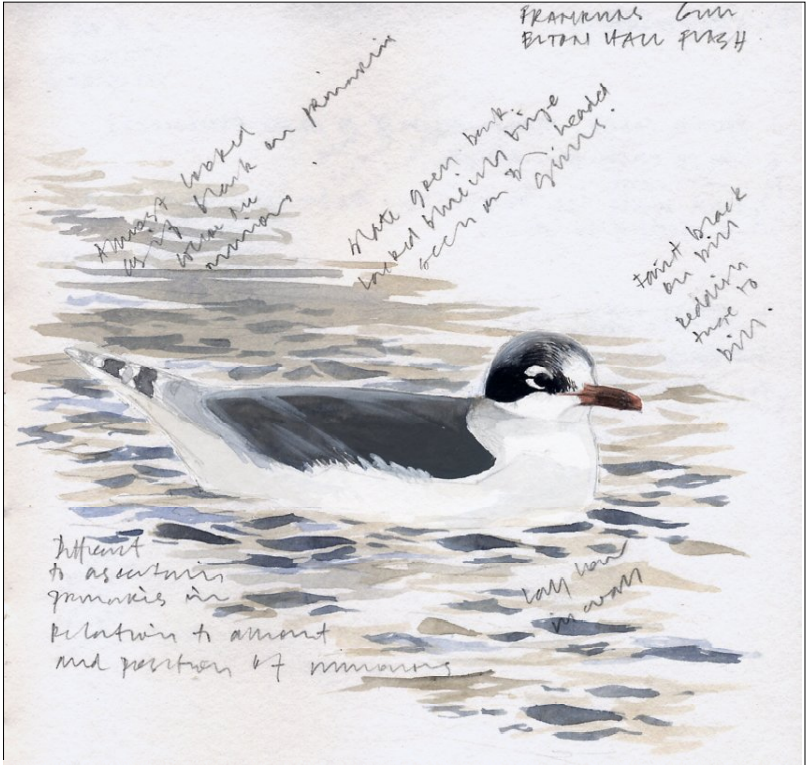 FRANKLINS GULL
ELTON HALL FLASH
Almost looked
as if black on primaries
were in
mirrors.
Slate grey back.
looked blue
seen on BT headed
gulls.
Faint black
on bill
reddish
tone to
bill.
Difficult
to ascertain
primaries in
Relation to amount
and position of mirrors
in water